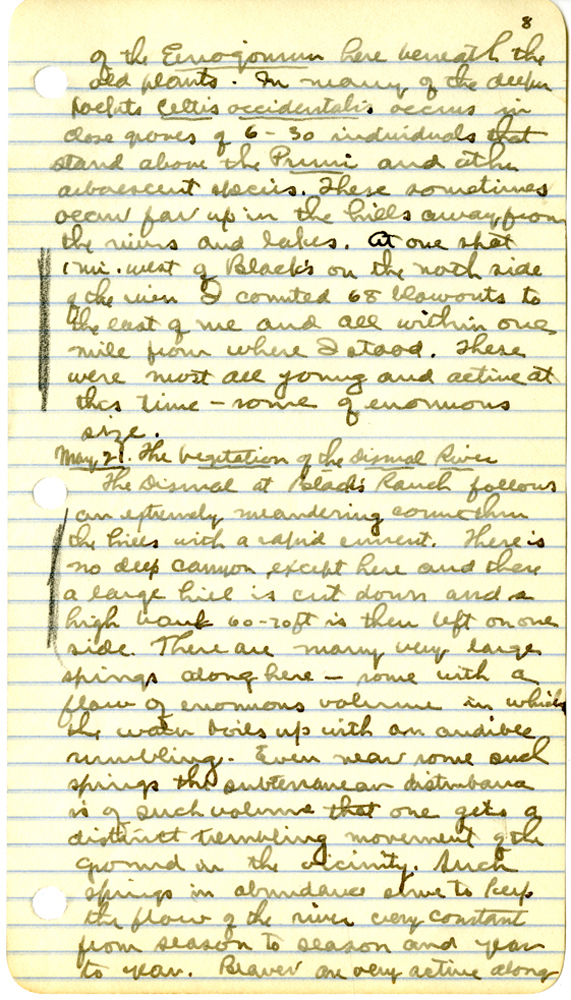 8
of the Eriogonum here beneath the
old plants. In many of the deeper
pockets Celtis occidentalis occurs in
close groves of 6-30 individuals that
stand above the Pruni and other
arborescent species. These sometimes
occur far up in the hills away from
the rivers and lakes. At one spot
1 mi. west of Black's on the north side
of the river I counted 68 blowouts to
the east of me and all within one
mile from where I stood. These
were most all young and active at
this time - some of enormous
size.
May 21. The vegetation of the Dismal River
The Dismal at Black's Ranch follows
an extremely meandering course thru
the hills with a rapid current. There is
no deep canyon except here and there
a large hill is cut down and a
high bank 60-70 ft is then left on one
side. There are many very large
springs along here - some with a
flow of enormous volume in which
the water boils up with an audible
rumbling. Even near some such
springs the subterranean disturbance
is of such volume that one gets a
distinct trembling movement of the
ground in the vicinity. Such
springs in abundance serve to keep
the flow of the river very constant
from season to season and year
to year. Beaver are very active along